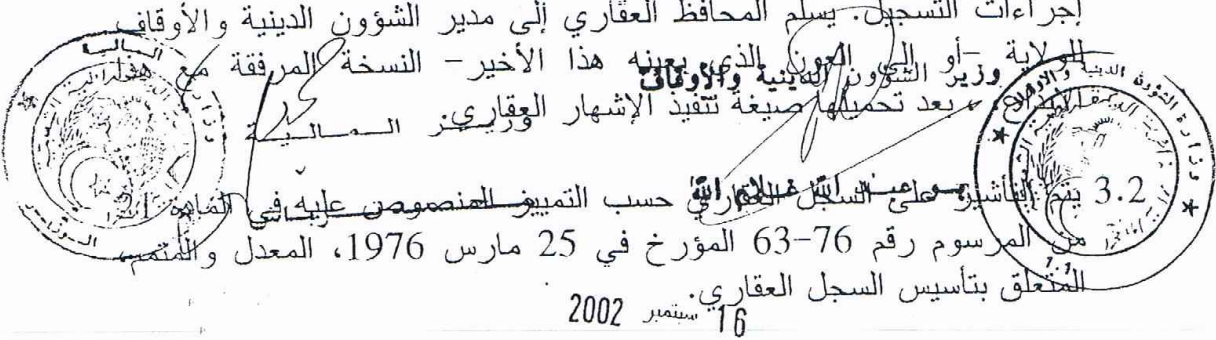 إجراءات التسجيل. يسلم المحافظ العقاري إلى مدير الشؤون الدينية والأوقاف
للولاية -أو إلى العون الذي يعينه هذا الأخير- النسخة المرفقة مع هذا
وزير الشؤون الدينية والأوقاف
الإيداع، بعد تحميلها صيغة تنفيذ الإشهار العقاري.
وزير المالية
3.2 يتم التأشير على السجل العقاري حسب التمييز المنصوص عليه في المادة
بو عبد الله غلام الله
من المرسوم رقم 76-63 المؤرخ في 25 مارس 1976، المعدل والمتمم،
المتعلق بتأسيس السجل العقاري.
16 سبتمبر 2002